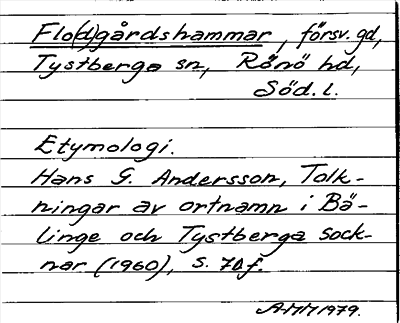 Flo(d)gårdshammar, försv. gd,
Tystberga sn, Rönö hd,
Söd. l.
Etymologi.
Hans G. Andersson, Tolk-
ningar av ortnamn i Bä-
linge och Tystberga sock-
nar (1960), s. f.
AMM 1979.